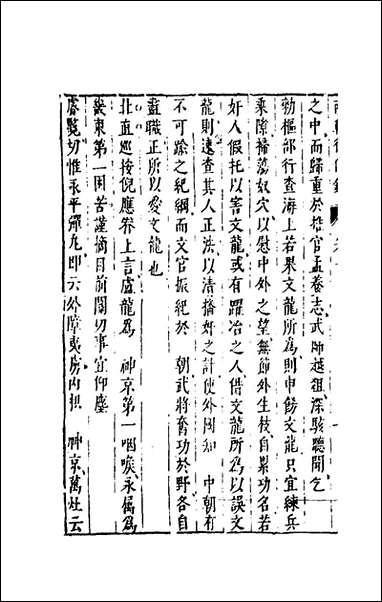 之中而歸重於督官孟養志武師越俎深駭聽聞乞
勑樞部行查海上若果文龍所為則申飭文龍只宜練兵
乘隙掃蕩奴穴以慰中外之望無節外生枝自累功名若
奸人假托以害文龍或有躍冶之人借文龍所為以誤文
龍則速查其人正法以清搆奸之計使外國知 中朝有
不可踰之紀綱而文官振紀於 朝武將奮功於野各自
盡職正所以愛文龍也
北直巡按倪應眷上言盧龍為 神京第一咽喉永屬為
畿東第一困苦謹摘目前關切事宜仰塵
睿覽切惟永平彈丸即云外障夷房内拱 神京萬灶云